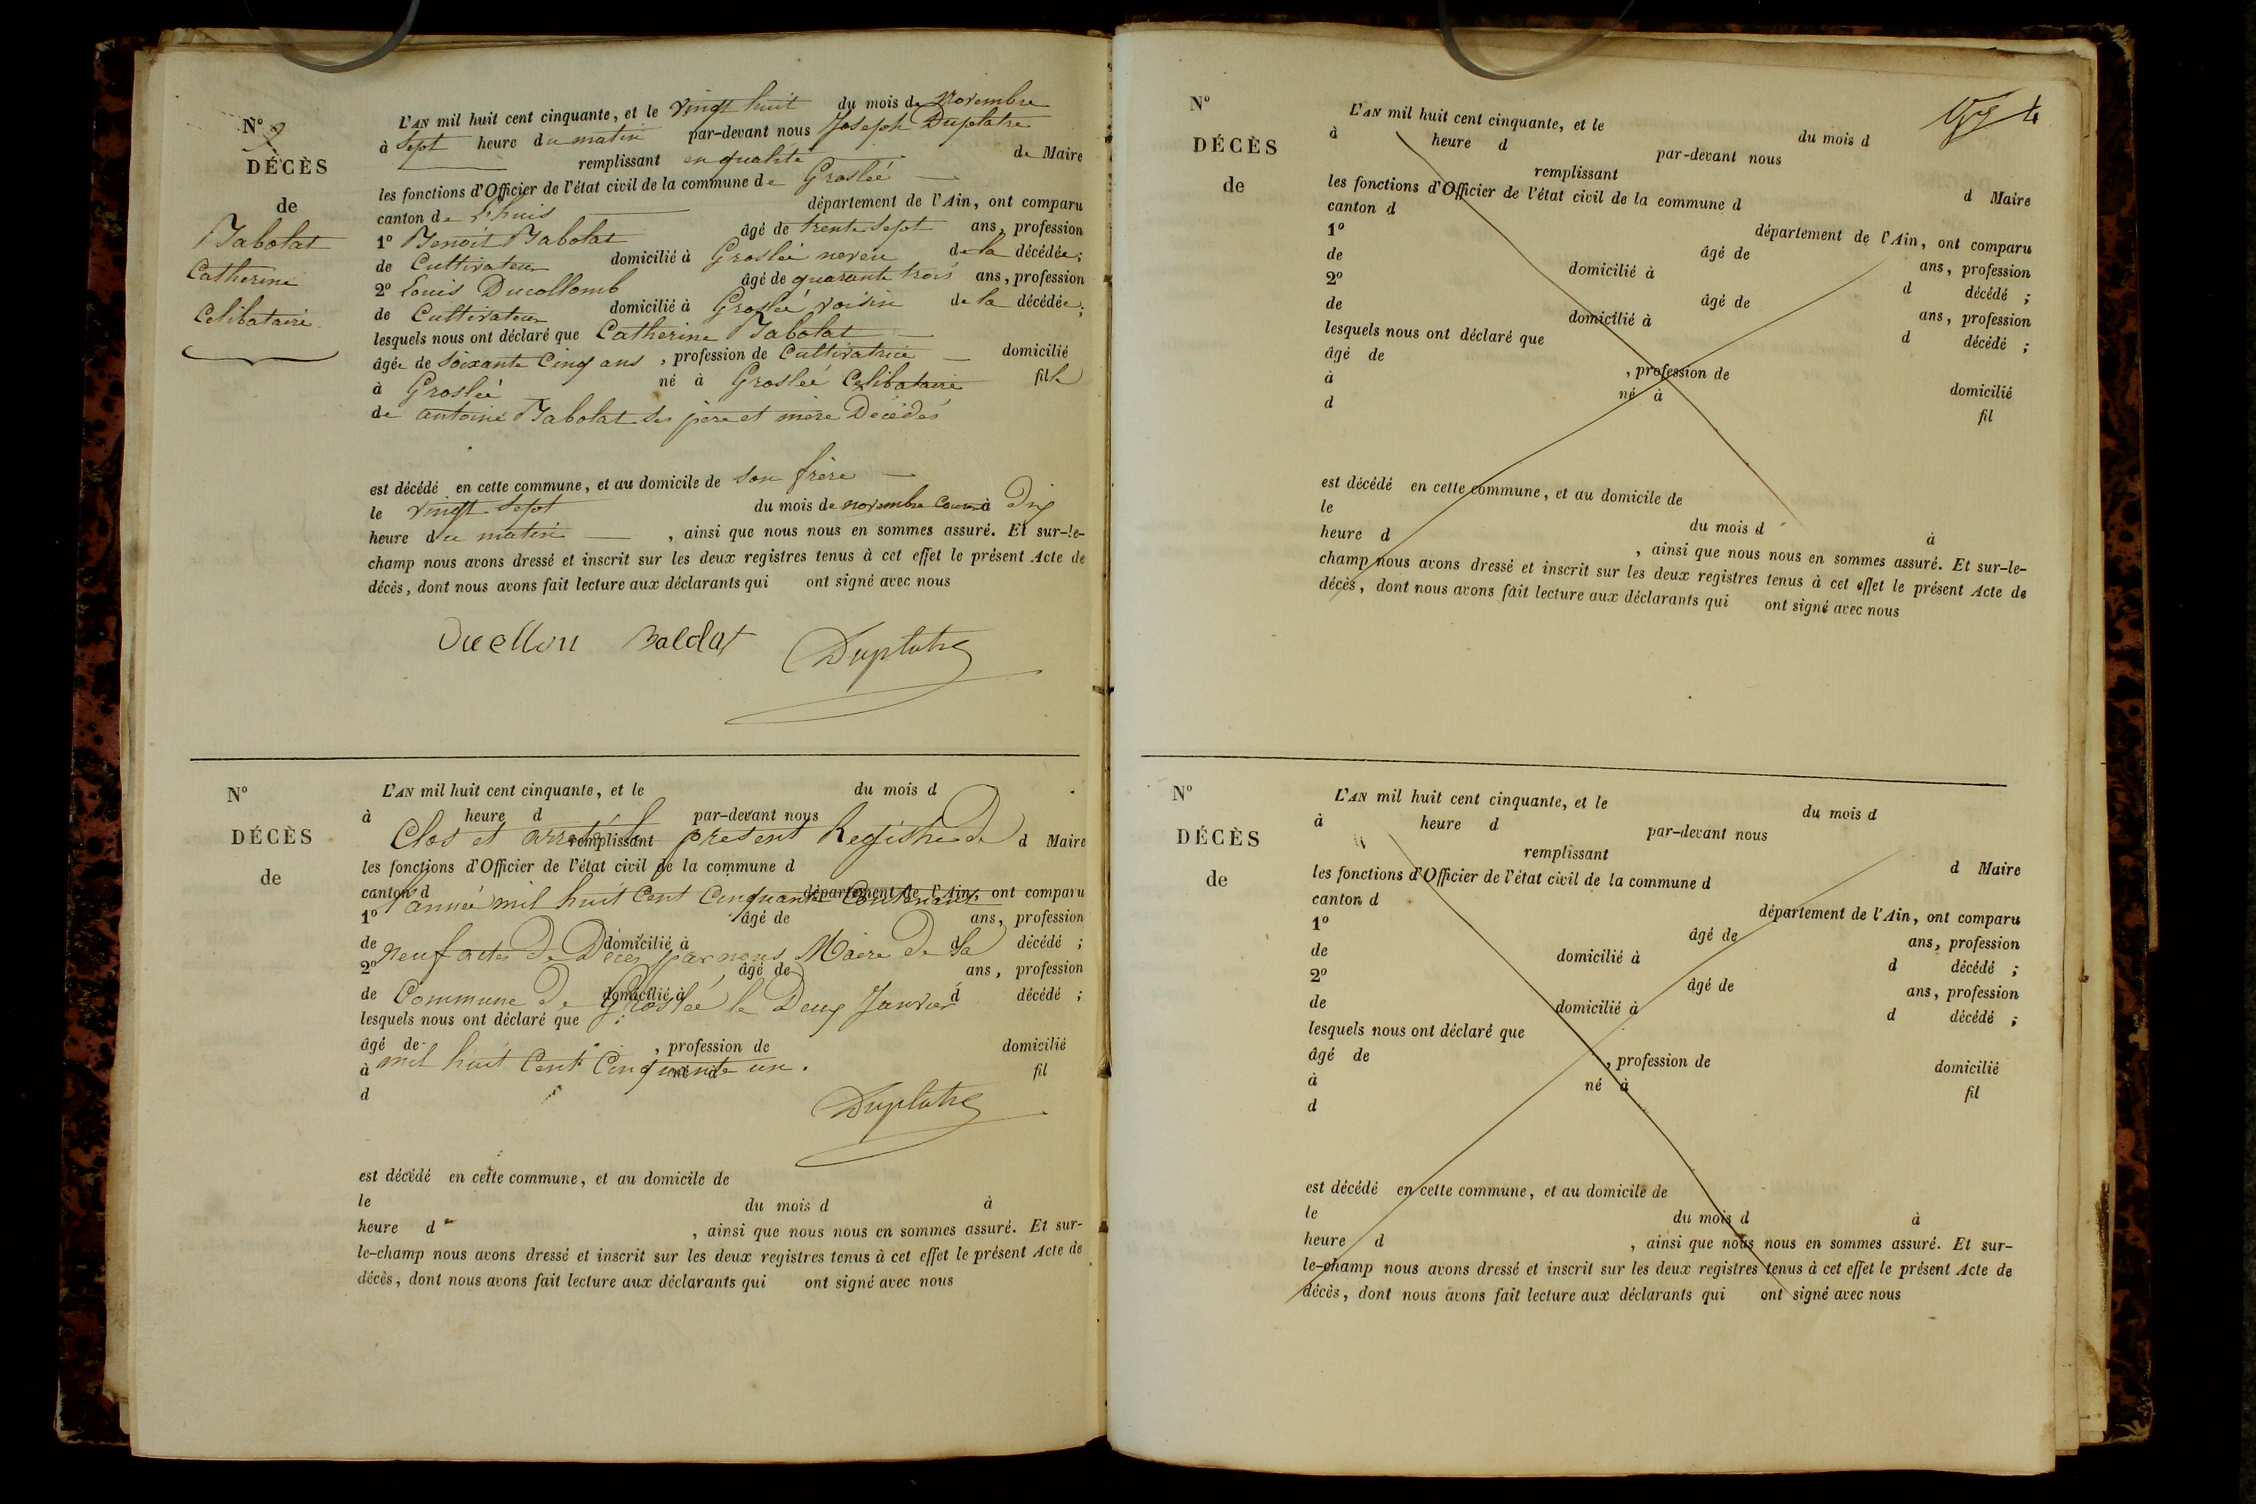 N° 9
DÉCÈS
de
Babolat
Catherine
Celibataire
L'AN mil huit cent cinquante, et le vingt huit du mois de Novembre
à Sept heure du matin par-devant nous Joseph Duplatre
remplissant en qualité de Maire
les fonctions d'Officier de l'état civil de la commune de Groslée
canton de Lhuis département de l'Ain, ont comparu
1° Benoit Babolat âgé de trente Sept ans, profession
de Cultivateur domicilié à Groslée neveu de la décédée;
2° Louis Ducollomb âgé de quarante trois ans, profession
de Cultivateur domicilié à Groslée voisin de la décédée;
lesquels nous ont déclaré que Catherine Babolat
âgée de Soixante Cinq ans, profession de Cultivatrice domicilié
à Groslée né à Groslée Celibataire fille
de antoine Babolat ses père et mère Décédés
est décédé en cette commune, et au domicile de son frère
le vingt Sept du mois de novembre à Dix
heure du matin, ainsi que nous nous en sommes assuré. Et sur-le-
champ nous avons dressé et inscrit sur les deux registres tenus à cet effet le présent Acte de
décès, dont nous avons fait lecture aux déclarants qui ont signé avec nous
Duplatre
N°
DÉCÈS
de
L'AN mil huit cent cinquante, et le du mois d
à heure d par-devant nous
Clos et arreté le présent Registre de
remplissant d Maire
les fonctions d'Officier de l'état civil de la commune d
canton d département de l'Ain, ont comparu
l'année mil huit Cent Cinquante Contenant
1° âgé de ans, profession
de domicilié à d décédé ;
neuf actes De Décès par nous Maire De la
2° âgé de ans, profession
de domicilié à d décédé ;
Commune De Groslée le Deux Janvier
lesquels nous ont déclaré que
âgé de , profession de domicilié
mil huit Cent Cinquante un.
à né à fil
d
Duplatre
est décédé en cette commune, et au domicile de
le du mois d à
heure d , ainsi que nous nous en sommes assuré. Et sur-
le-champ nous avons dressé et inscrit sur les deux registres tenus à cet effet le présent Acte de
décès, dont nous avons fait lecture aux déclarants qui ont signé avec nous
N°
DÉCÈS
de
L'AN mil huit cent cinquante, et le du mois d
à heure d par-devant nous
remplissant d Maire
les fonctions d'Officier de l'état civil de la commune d
canton d département de l'Ain, ont comparu
1° âgé de ans, profession
de domicilié à d décédé ;
2° âgé de ans, profession
de domicilié à d décédé ;
lesquels nous ont déclaré que
âgé de , profession de domicilié
à né à fil
d
est décédé en cette commune, et au domicile de
le du mois d à
heure d , ainsi que nous nous en sommes assuré. Et sur-le-
champ nous avons dressé et inscrit sur les deux registres tenus à cet effet le présent Acte de
décès, dont nous avons fait lecture aux déclarants qui ont signé avec nous
N°
DÉCÈS
de
L'AN mil huit cent cinquante, et le du mois d
à heure d par-devant nous
remplissant d Maire
les fonctions d'Officier de l'état civil de la commune d
canton d département de l'Ain, ont comparu
1° âgé de ans, profession
de domicilié à d décédé ;
2° âgé de ans, profession
de domicilié à d décédé ;
lesquels nous ont déclaré que
âgé de , profession de domicilié
à né à fil
d
est décédé en cette commune, et au domicile de
le du mois d à
heure d , ainsi que nous nous en sommes assuré. Et sur-
le-champ nous avons dressé et inscrit sur les deux registres tenus à cet effet le présent Acte de
décès, dont nous avons fait lecture aux déclarants qui ont signé avec nous